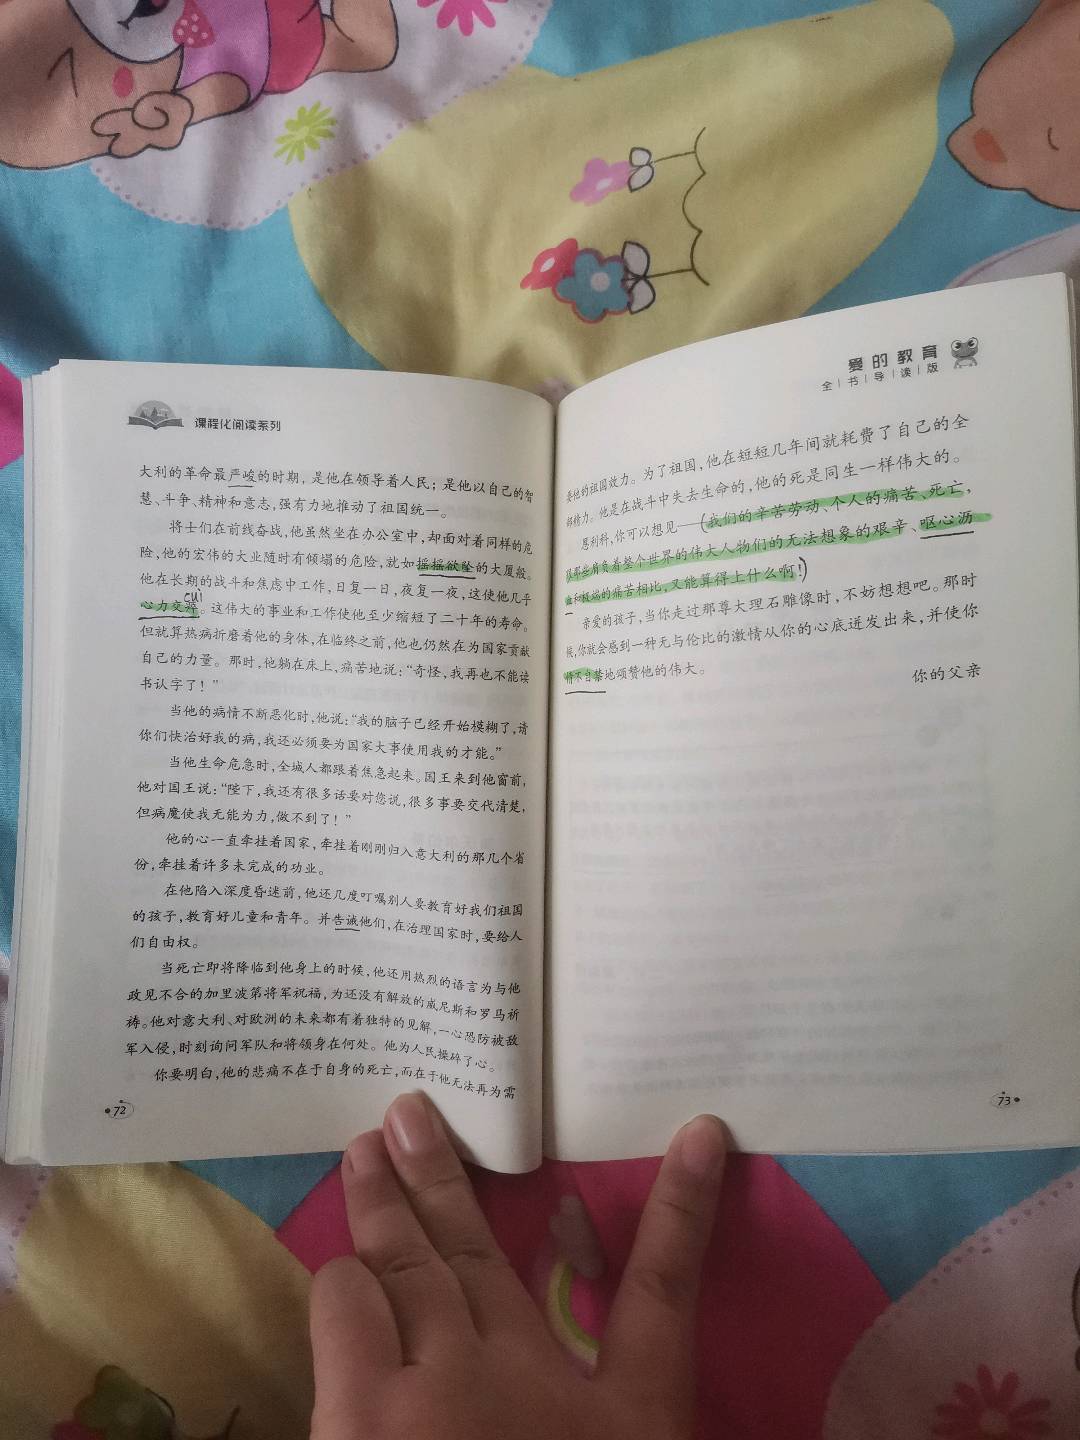 课程化阅读系列
大利的革命最严峻的时期，是他在领导着人民；是他以自己的智
慧、斗争、精神和意志，强有力地推动了祖国统一。
将士们在前线奋战，他虽然坐在办公室中，却面对着同样的危
险，他的宏伟的大业随时有倾塌的危险，就如摇摇欲坠的大厦般。
他在长期的战斗和焦虑中工作，日复一日，夜复一夜，这使他几乎
cuì
心力交瘁。这伟大的事业和工作使他至少缩短了二十年的寿命。
但就算热病折磨着他的身体，在临终之前，他也仍然在为国家贡献
自己的力量。那时，他躺在床上，痛苦地说：“奇怪，我再也不能读
书认字了！”
当他的病情不断恶化时，他说：“我的脑子已经开始模糊了，请
你们快治好我的病，我还必须要为国家大事使用我的才能。”
当他生命危急时，全城人都跟着焦急起来。国王来到他窗前，
他对国王说：“陛下，我还有很多话要对您说，很多事要交代清楚，
但病魔使我无能为力，做不到了！”
他的心一直牵挂着国家，牵挂着刚刚归入意大利的那几个省
份，牵挂着许多未完成的功业。
在他陷入深度昏迷前，他还几度叮嘱别人要教育好我们祖国
的孩子，教育好儿童和青年。并告诫他们，在治理国家时，要给人
们自由权。
当死亡即将降临到他身上的时候，他还用热烈的语言为与他
政见不合的加里波第将军祝福，为还没有解放的威尼斯和罗马祈
祷。他对意大利、对欧洲的未来都有着独特的见解，一心恐防被敌
军入侵，时刻询问军队和将领身在何处。他为人民操碎了心。
你要明白，他的悲痛不在于自身的死亡，而在于他无法再为需
72
爱的教育
全书导读版
要他的祖国效力。为了祖国，他在短短几年间就耗费了自己的全
部精力。他是在战斗中失去生命的，他的死是同生一样伟大的。
恩利科，你可以想见——（我们的辛苦劳动、个人的痛苦、死亡，
跟那些肩负着整个世界的伟大人物们的无法想象的艰辛、呕心沥
血和极端的痛苦相比，又能算得上什么啊！）
亲爱的孩子，当你走过那尊大理石雕像时，不妨想想吧。那时
候，你就会感到一种无与伦比的激情从你的心底迸发出来，并使你
情不自禁地颂赞他的伟大。
你的父亲
73